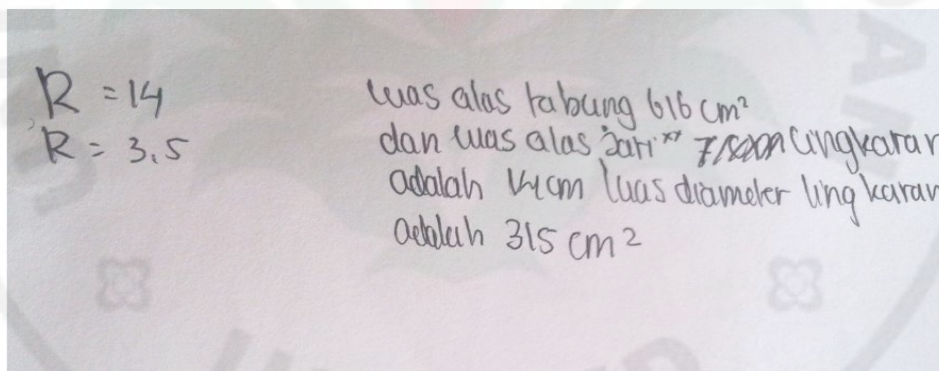 R = 14
R = 3.5
luas alas tabung 616 cm²
dan luas alas jari" lingkaran
adalah 14cm luas diameter lingkaran
adalah 315 cm²